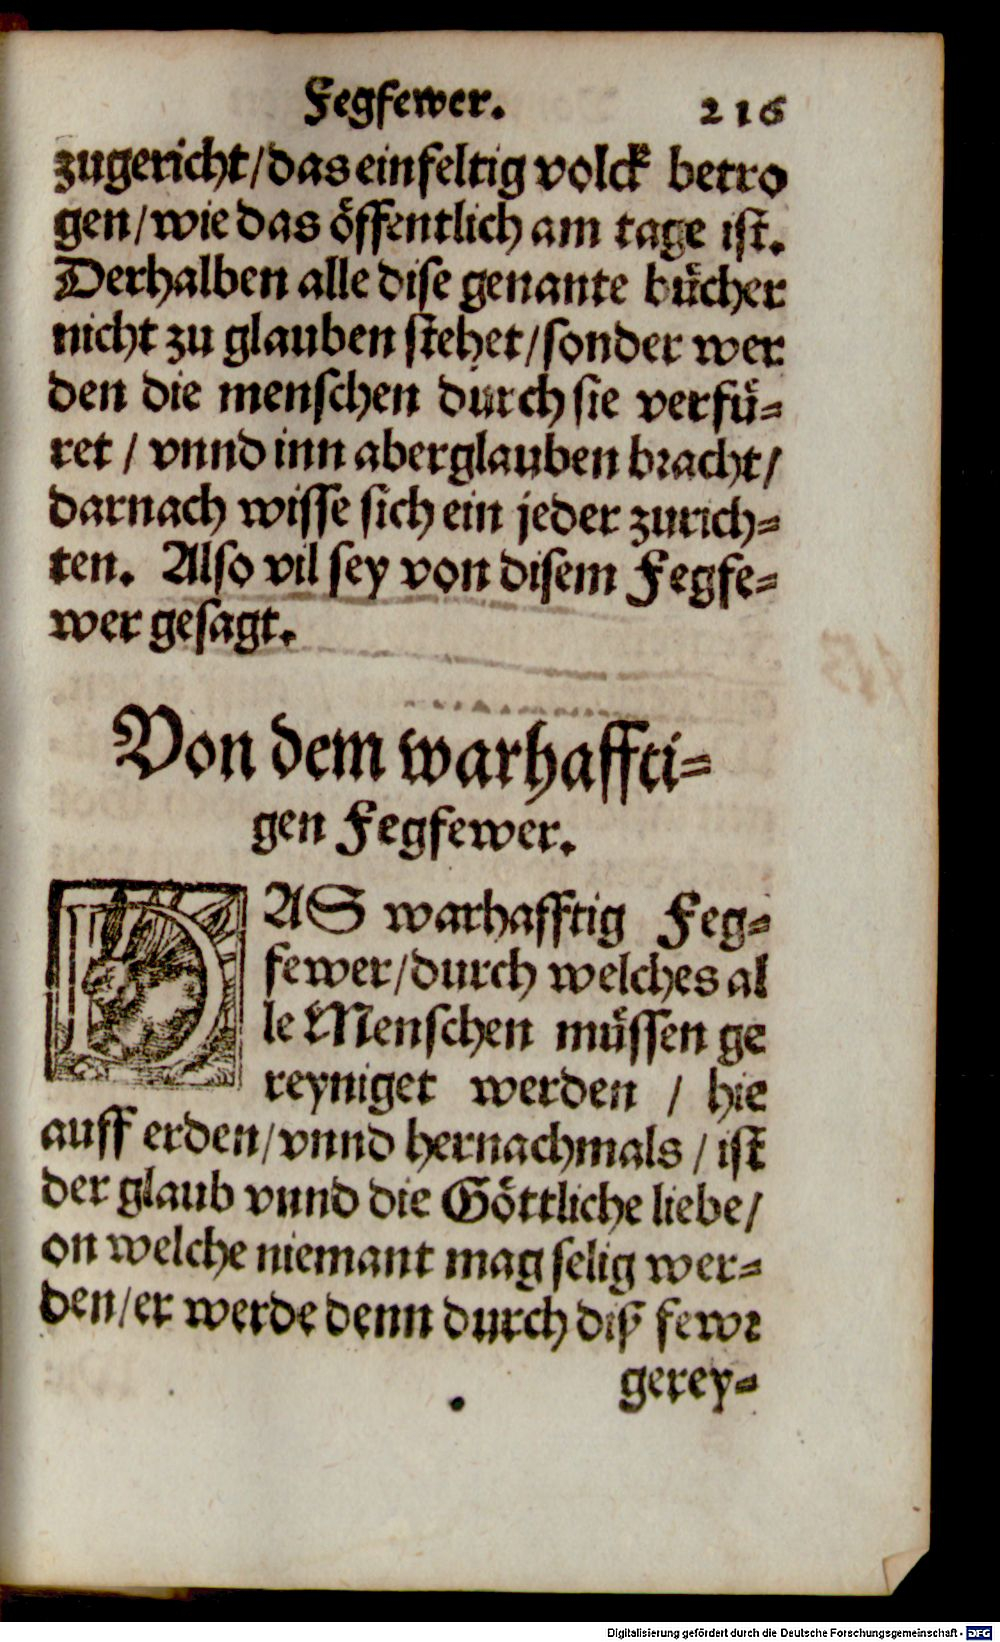 Fegfewer. 216
zugericht/das einfeltig volck betro
gen/wie das öffentlich am tage ist.
Derhalben alle dise genante bücher
nicht zu glauben stehet/sonder wer
den die menschen durch sie verfü-
ret / vnnd inn aberglauben bracht/
darnach wisse sich ein jeder zurich-
ten. Also vil sey von disem Fegfe-
wer gesagt.
Von dem warhaffti-
gen Fegfewer.
DAS warhafftig Feg-
fewer/durch welches al
le Menschen müssen ge
reyniget werden / hie
auff erden/vnnd hernachmals / ist
der glaub vnnd die Göttliche liebe/
on welche niemant mag selig wer-
den/er werde denn durch diß fewr
gerey-
Digitalisierung gefördert durch die Deutsche Forschungsgemeinschaft - DFG